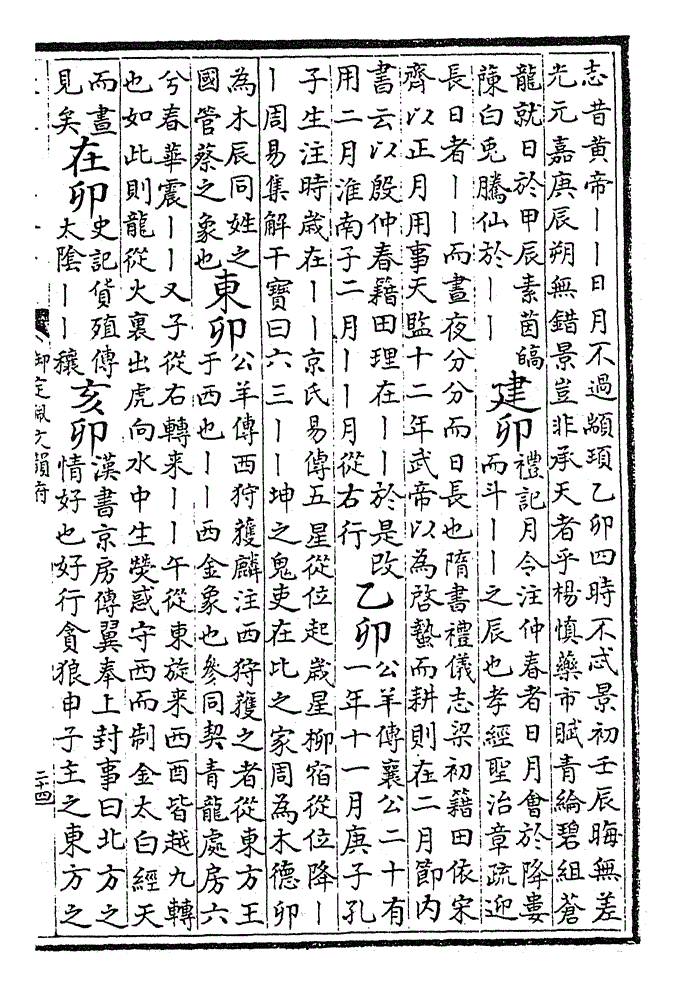 志昔黃帝丨丨日月不過顓頊乙卯四時不忒景初壬辰晦無差
光元嘉庚辰朔無錯景豈非承天者乎楊慎藥市賦青綸碧組蒼
龍就日於甲辰素茵皜
陳白兎騰仙於丨丨
建卯
禮記月令注仲春者日月會於降婁
而斗丨丨之辰也孝經聖治章疏迎
長日者丨丨而晝夜分分而日長也隋書禮儀志梁初籍田依宋
齊以正月用事天監十二年武帝以為啓蟄而耕則在二月節内
書云以殷仲春籍田理在丨丨於是改
用二月淮南子二月丨丨月從右行
乙卯
公羊傳襄公二十有
一年十一月庚子孔
子生注時歳在丨丨京氏易傳五星從位起歳星柳宿從位降丨
丨周易集解干寶曰六三丨丨坤之鬼吏在比之家周為木德卯
為木辰同姓之
國管蔡之象也
東卯
公羊傳西狩獲麟注西狩獲之者從東方王
于西也丨丨西金象也參同契青龍處房六
兮春華震丨丨又子從右轉来丨丨午從東旋来西酉皆越九轉
也如此則龍從火裏出虎向水中生熒惑守西而制金太白經天
而晝
見矣
在卯
史記貨殖傳
太陰丨丨穰
亥卯
漢書京房傳翼奉上封事曰北方之
情好也好行貪狼申子主之東方之
御定佩文韻府
二十四